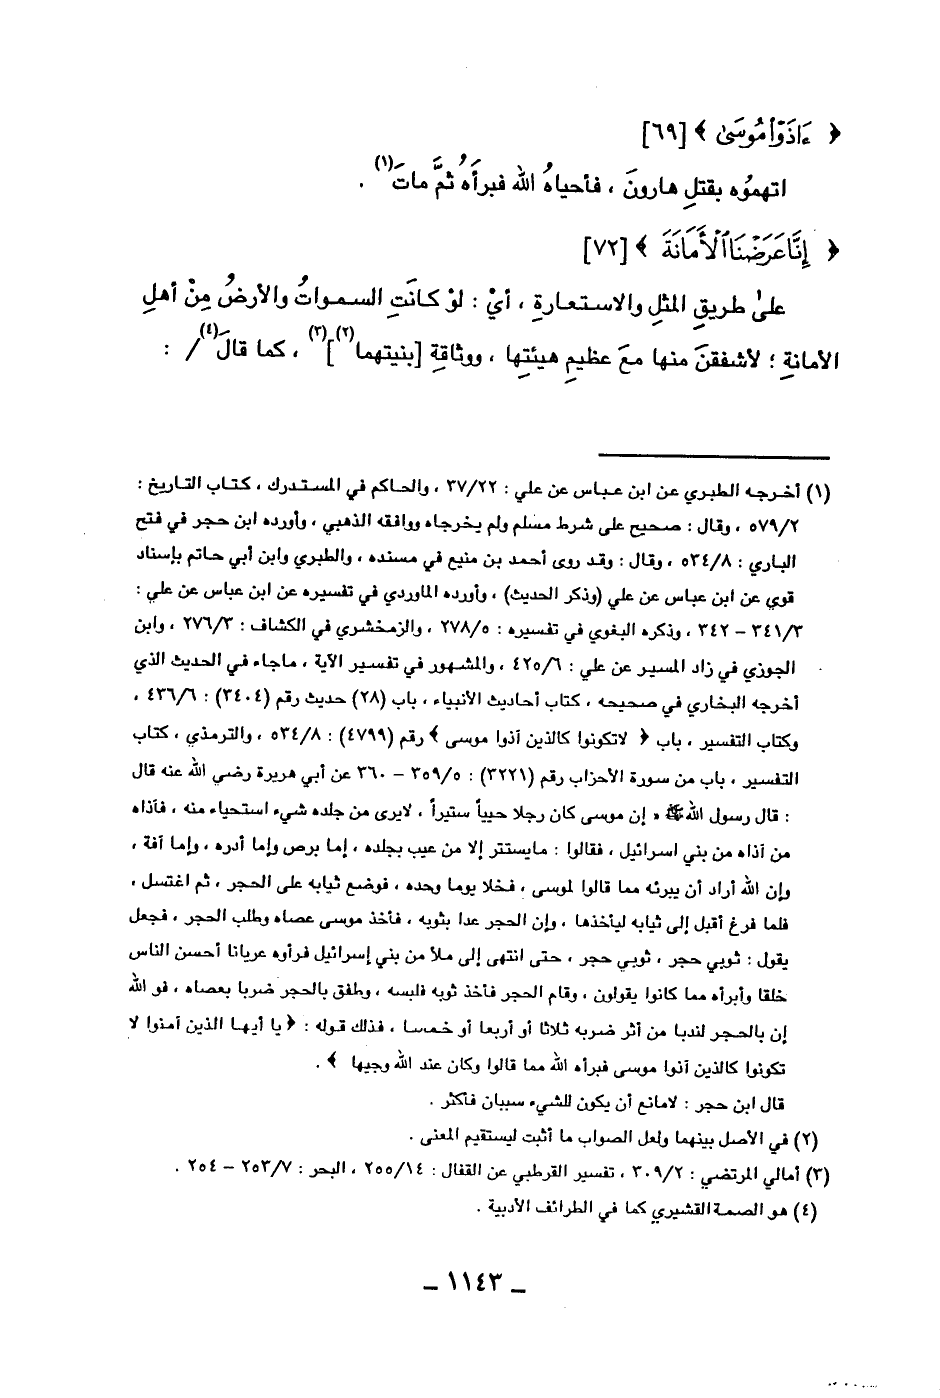 ﴿ ءَاذَوْا۟ مُوسَىٰ ﴾ [٦٩]
اتهمُوه بقتلِ هارونَ ، فأحياهُ الله فبرأَه ثُمَّ ماتَ(١) .
﴿ إِنَّا عَرَضْنَا ٱلْأَمَانَةَ ﴾ [٧٢]
علىٰ طريقِ المثلِ والاستعارةِ ، أيْ : لوْ كانَتِ السمواتُ والأرضُ مِنْ أهلِ
الأمانةِ ؛ لأشفقنَ منها معَ عظيمِ هيئتِها ، ووثاقةِ [بنيتهما(٢)](٣) ، كما قالَ(٤)/ :
(١) أخرجه الطبري عن ابن عباس عن علي : ٣٧/٢٢ ، والحاكم في المستدرك ، كتاب التاريخ :
٥٧٩/٢ ، وقال : صحيح على شرط مسلم ولم يخرجاه ووافقه الذهبي ، وأورده ابن حجر في فتح
الباري : ٥٣٤/٨ ، وقال : وقد روى أحمد بن منيع في مسنده ، والطبري وابن أبي حاتم بإسناد
قوي عن ابن عباس عن علي (وذكر الحديث) ، وأورده الماوردي في تفسيره عن ابن عباس عن علي :
٣٤١/٣ – ٣٤٢ ، وذكره البغوي في تفسيره : ٢٧٨/٥ ، والزمخشري في الكشاف : ٢٧٦/٣ ، وابن
الجوزي في زاد المسير عن علي : ٤٢٥/٦ ، والمشهور في تفسير الآية ، ماجاء في الحديث الذي
أخرجه البخاري في صحيحه ، كتاب أحاديث الأنبياء ، باب (٢٨) حديث رقم (٣٤٠٤) : ٤٣٦/٦ ،
وكتاب التفسير ، باب ﴿ لاتكونوا كالذين آذوا موسى ﴾ رقم (٤٧٩٩) : ٥٣٤/٨ ، والترمذي ، كتاب
التفسير ، باب من سورة الأحزاب رقم (٣٢٢١) : ٣٥٩/٥ – ٣٦٠ عن أبي هريرة رضي الله عنه قال
: قال رسول الله ﷺ « إن موسى كان رجلا حيياً ستيراً ، لايرى من جلده شيء استحياء منه ، فآذاه
من آذاه من بني اسرائيل ، فقالوا : مايستتر إلا من عيب بجلده ، إما برص وإما أدره ، وإما آفة ،
وإن الله أراد أن يبرئه مما قالوا لموسى ، فخلا يوما وحده ، فوضع ثيابه على الحجر ، ثم اغتسل ،
فلما فرغ أقبل إلى ثيابه ليأخذها ، وإن الحجر عدا بثوبه ، فأخذ موسى عصاه وطلب الحجر ، فجعل
يقول : ثوبي حجر ، ثوبي حجر ، حتى انتهى إلى ملأ من بني إسرائيل فرأوه عريانا أحسن الناس
خلقا وأبرأه مما كانوا يقولون ، وقام الحجر فأخذ ثوبه فلبسه ، وطفق بالحجر ضربا بعصاه ، فو الله
إن بالحجر لندبا من أثر ضربه ثلاثا أو أربعا أو خمسا ، فذلك قوله : ﴿ يا أيها الذين آمنوا لا
تكونوا كالذين آذوا موسى فبرأه الله مما قالوا وكان عند الله وجيها ﴾ .
قال ابن حجر : لامانع أن يكون للشيء سببان فأكثر .
(٢) في الأصل بينهما ولعل الصواب ما أثبت ليستقيم المعنى .
(٣) أمالي المرتضي : ٣٠٩/٢ ، تفسير القرطبي عن القفال : ٢٥٥/١٤ ، البحر : ٢٥٣/٧ – ٢٥٤ .
(٤) هو الصمة القشيري كما في الطرائف الأدبية .
– ١١٤٣ –